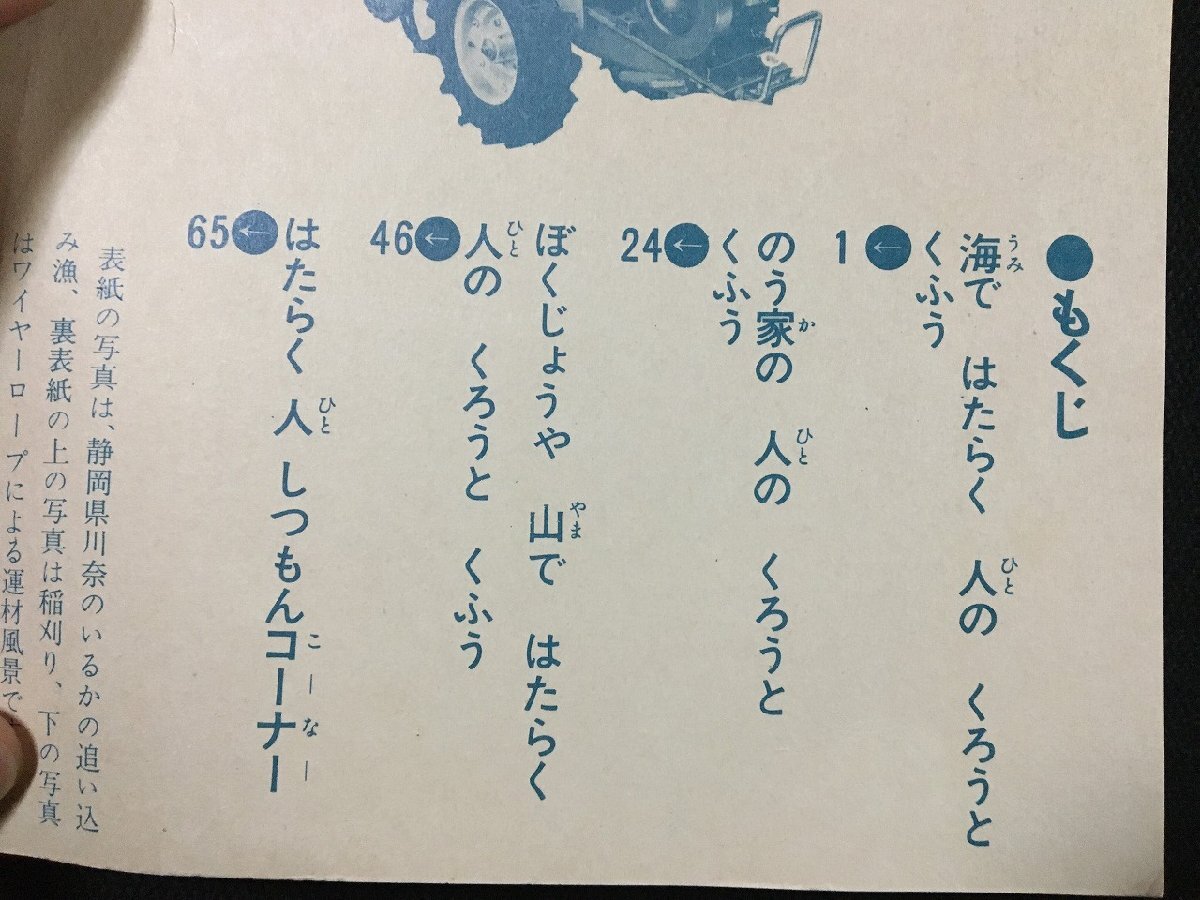 ●もくじ
海で はたらく 人の くろうと
くふう
1
のう家の 人の くろうと
くふう
24
ぼくじょうや 山で はたらく
人の くろうと くふう
46
はたらく 人 しつもんコーナー
65
表紙の写真は、静岡県川奈のいるかの追い込
み漁、裏表紙の上の写真は稲刈り、下の写真
はワイヤーロープによる運材風景で